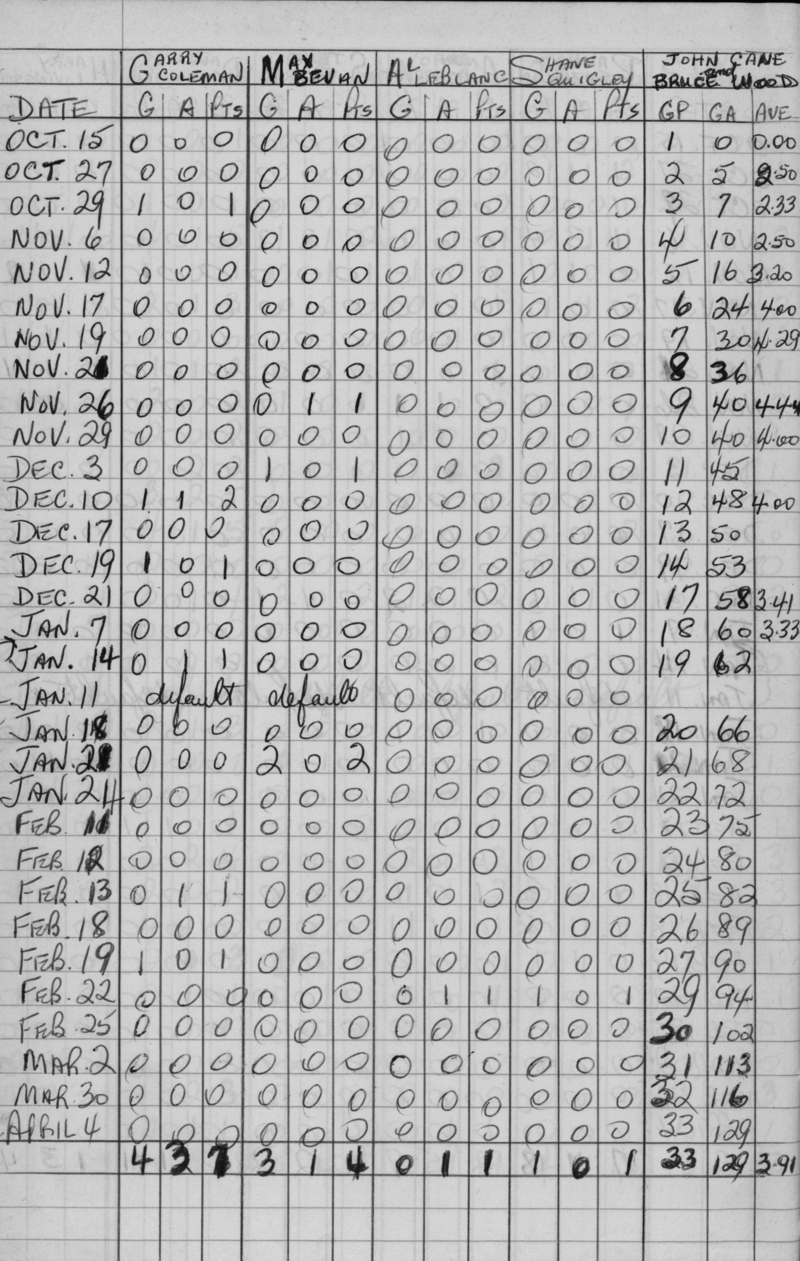 GARRY COLEMAN MAX BEVAN AL LEBLANC SHANE QUIGLEY JOHN CANE and BRUCE WOOD
DATE G A Pts G A Pts G A Pts G A Pts GP GA AVE
OCT. 15 0 0 0 0 0 0 0 0 0 0 0 0 1 0 0.00
OCT. 27 0 0 0 0 0 0 0 0 0 0 0 0 2 5 2.50
OCT. 29 1 0 1 0 0 0 0 0 0 0 0 0 3 7 2.33
NOV. 6 0 0 0 0 0 0 0 0 0 0 0 0 4 10 2.50
NOV. 12 0 0 0 0 0 0 0 0 0 0 0 0 5 16 3.20
NOV. 17 0 0 0 0 0 0 0 0 0 0 0 0 6 24 4.00
NOV. 19 0 0 0 0 0 0 0 0 0 0 0 0 7 30 4.29
NOV. 21 0 0 0 0 0 0 0 0 0 0 0 0 8 36
NOV. 26 0 0 0 0 1 1 0 0 0 0 0 0 9 40 4.44
NOV. 29 0 0 0 0 0 0 0 0 0 0 0 0 10 40 4.00
DEC. 3 0 0 0 1 0 1 0 0 0 0 0 0 11 45
DEC. 10 1 1 2 0 0 0 0 0 0 0 0 0 12 48 4.00
DEC. 17 0 0 0 0 0 0 0 0 0 0 0 0 13 50
DEC. 19 1 0 1 0 0 0 0 0 0 0 0 0 14 53
DEC. 21 0 0 0 0 0 0 0 0 0 0 0 0 17 58 3.41
JAN. 7 0 0 0 0 0 0 0 0 0 0 0 0 18 60 3.33
JAN. 14 0 1 1 0 0 0 0 0 0 0 0 0 19 62
JAN. 11 default default 0 0 0 0 0 0
JAN. 18 0 0 0 0 0 0 0 0 0 0 0 0 20 66
JAN. 21 0 0 0 2 0 2 0 0 0 0 0 0 21 68
JAN. 24 0 0 0 0 0 0 0 0 0 0 0 0 22 72
FEB 11 0 0 0 0 0 0 0 0 0 0 0 0 23 75
FEB 12 0 0 0 0 0 0 0 0 0 0 0 0 24 80
FEB. 13 0 1 1 0 0 0 0 0 0 0 0 0 25 82
FEB. 18 0 0 0 0 0 0 0 0 0 0 0 0 26 89
FEB. 19 1 0 1 0 0 0 0 0 0 0 0 0 27 90
FEB. 22 0 0 0 0 0 0 0 1 1 1 0 1 29 94
FEB. 25 0 0 0 0 0 0 0 0 0 0 0 0 30 102
MAR. 2 0 0 0 0 0 0 0 0 0 0 0 0 31 113
MAR. 30 0 0 0 0 0 0 0 0 0 0 0 0 32 116
APRIL 4 0 0 0 0 0 0 0 0 0 0 0 0 33 129
4 3 7 3 1 4 0 1 1 1 0 1 33 129 3.91